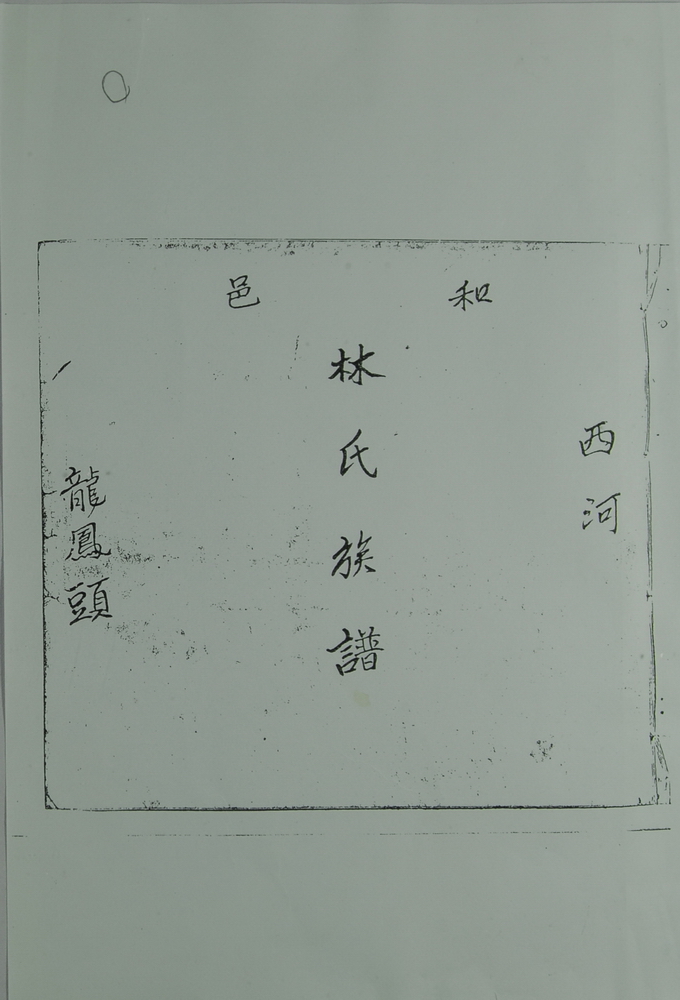 和邑
西河
林氏族譜
龍鳳頭